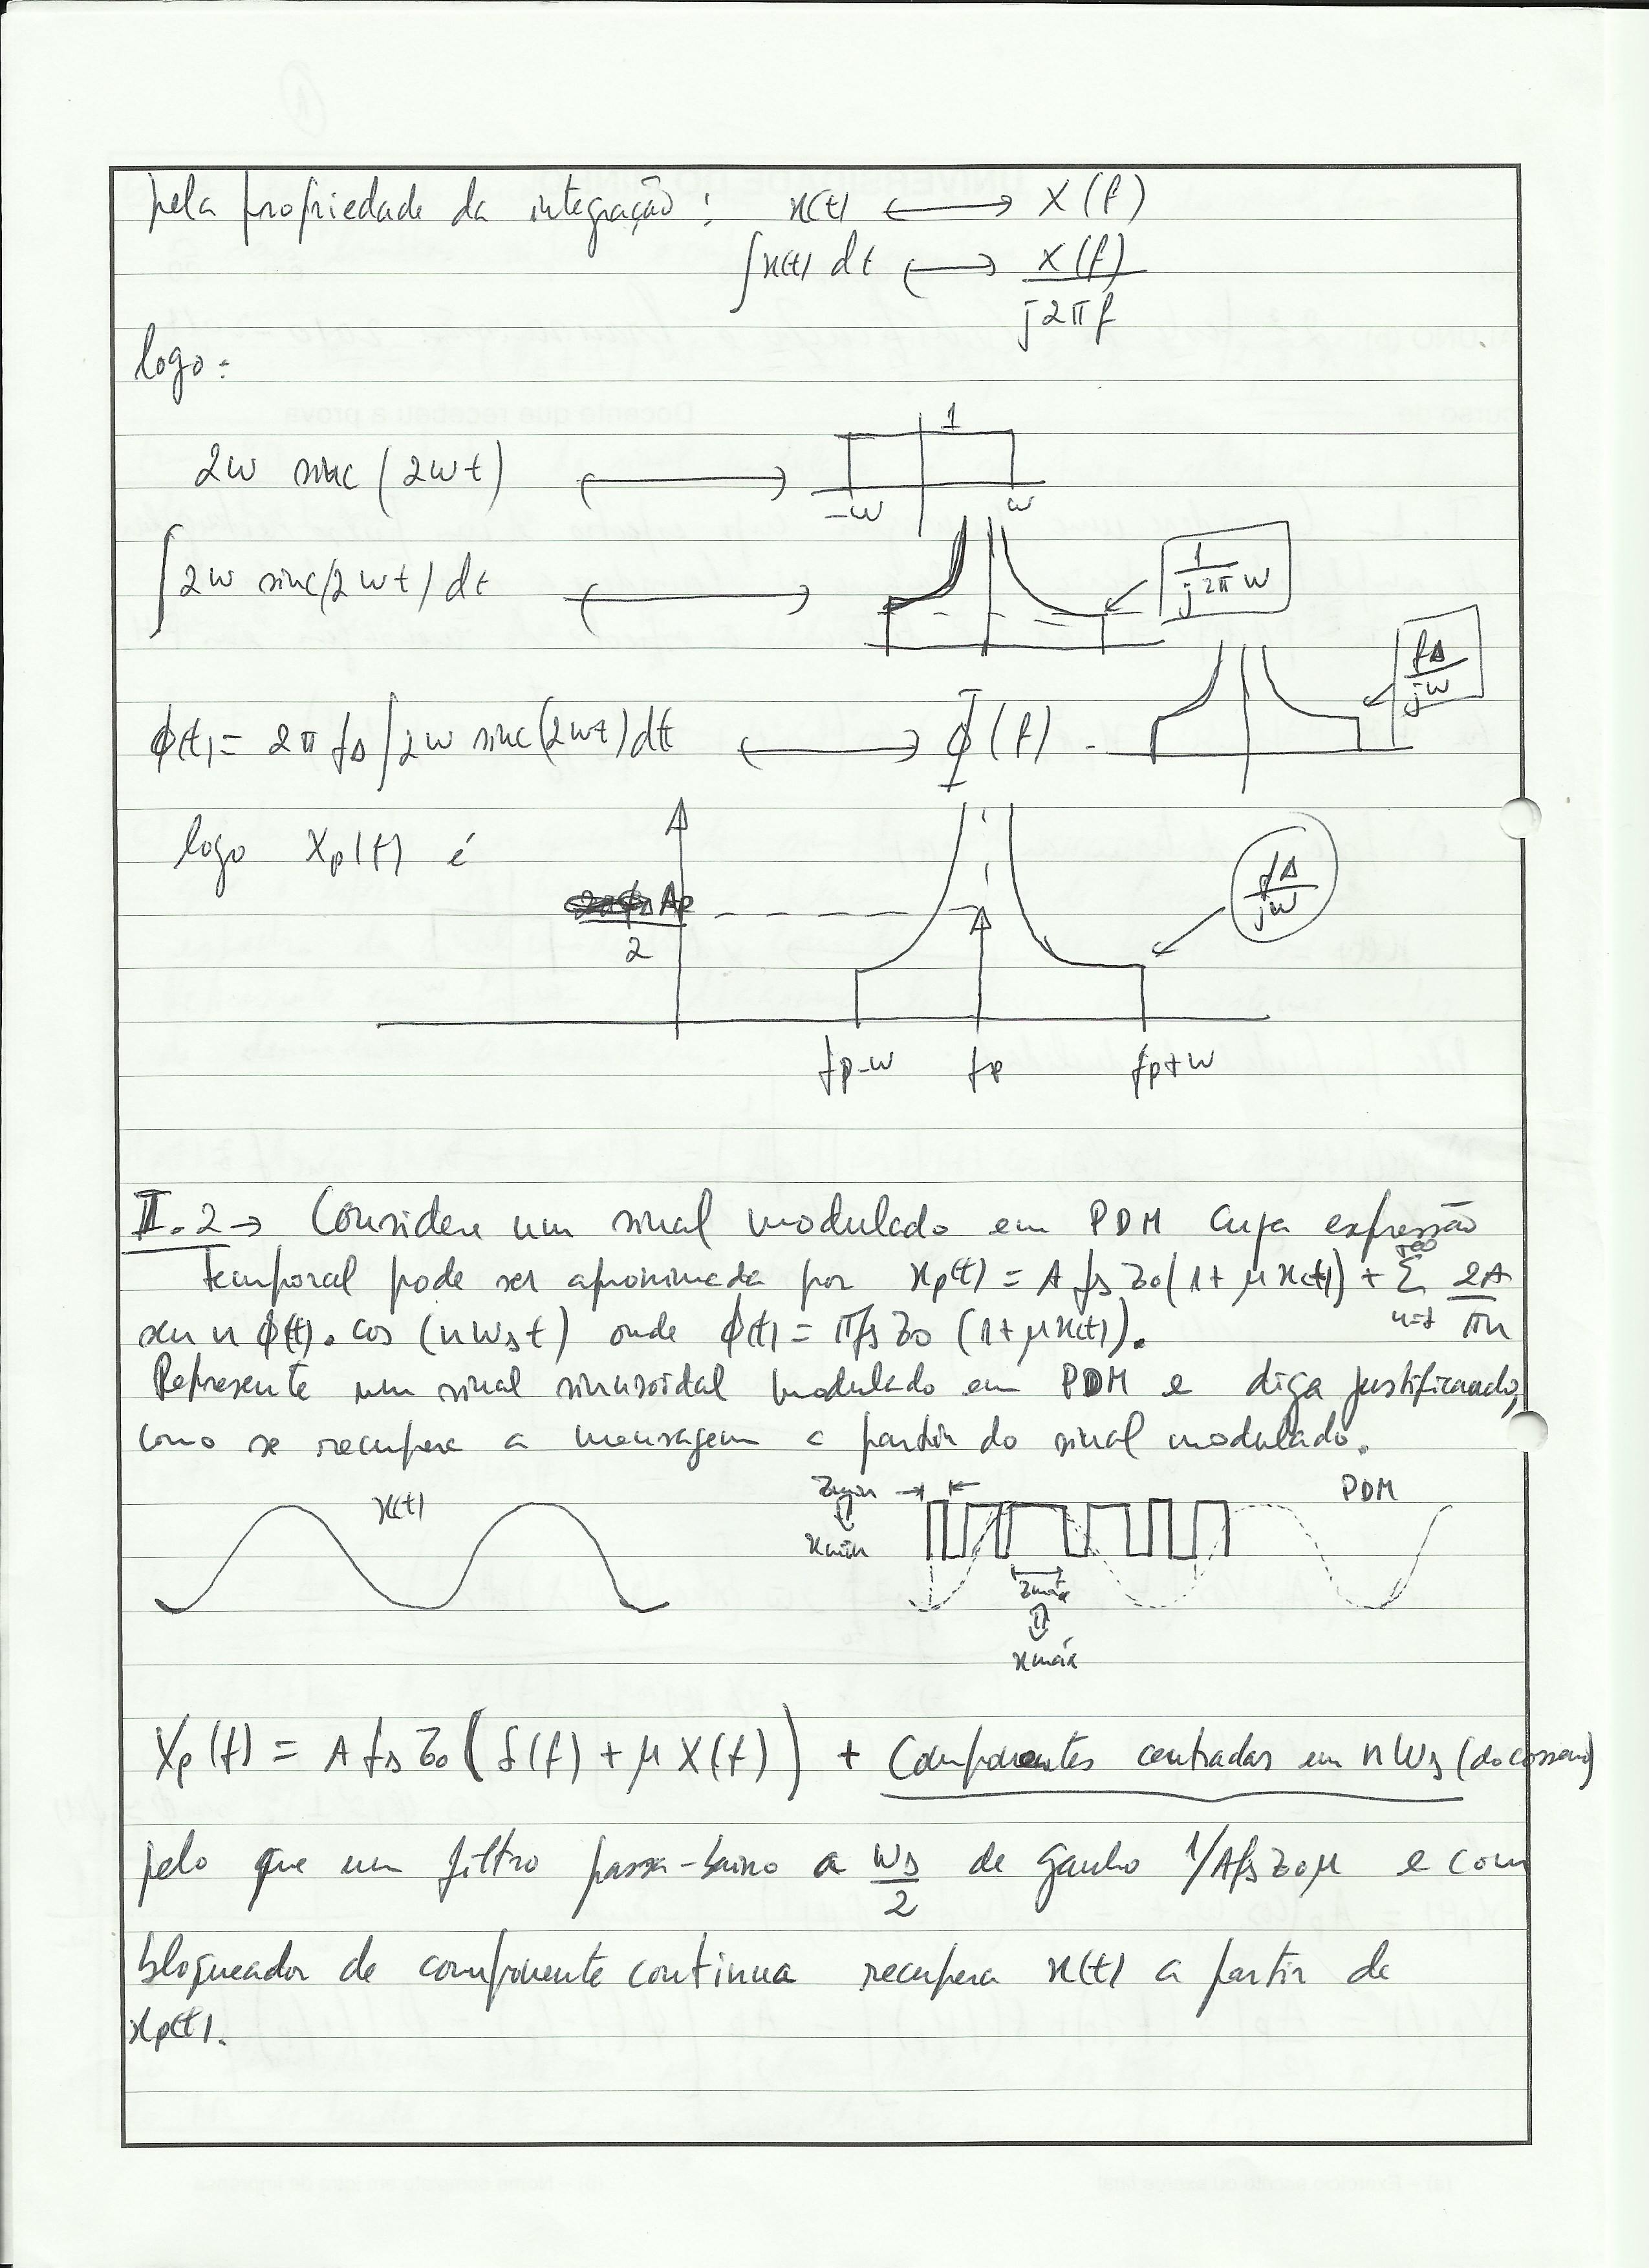 pela propriedade da integração: x(t) ⟷ X(f)
∫x(t) dt ⟷ X(f) / j2πf
logo:
1
2w sinc (2wt) ⟷ -w w
∫2w sinc(2wt) dt ⟷ 1 / j2πw
fΔ / jw
ϕ(t) = 2π fΔ ∫2w sinc(2wt) dt ⟷ Φ(f)
logo Xp(f) é
Ap / 2
fΔ / jw
fp-w fp fp+w
II.2 → Considere um sinal modulado em PDM cuja expressão
temporal pode ser aproximada por xp(t) = A fs Z0(1+μx(t)) + Σ n=1 +∞ 2A / πn
sen n ϕ(t). cos (n ws t) onde ϕ(t) = πfs Z0 (1+μx(t)).
Represente um sinal sinusoidal modulado em PDM e diga justificando,
como se recupera a mensagem a partir do sinal modulado.
x(t) Zmin → ← PDM
⇕
xmin
Zmáx
⇕
xmáx
Xp(f) = A fs Z0 (δ(f) + μ X(f)) + Componentes centradas em n ws (do cosseno)
pelo que um filtro passa-baixo a ws / 2 de ganho 1/Afs Z0 μ e com
bloqueador de componente continua recupera x(t) a partir de
xp(t).